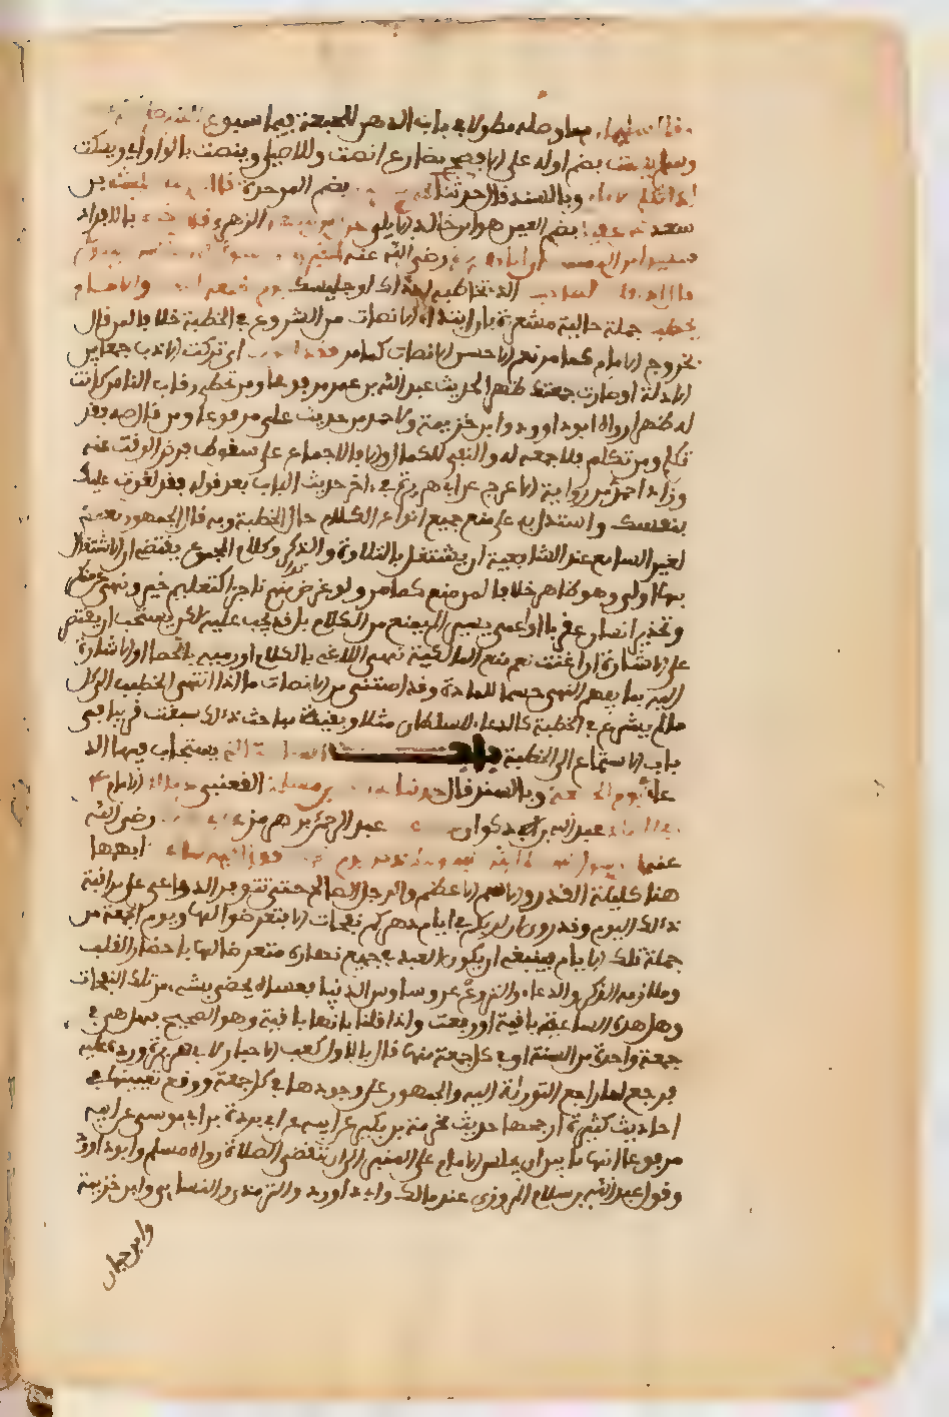 وقال سلمان مما وصله مطولا في باب الدهن للجمعة فيما سبق عن النبي صلى
وسلم ينصت بضم أوله على الأفصح مضارع أنصت وللأصيلي وينصت بالواو أي ويسكت
إذا تكلم الإمام وبالسند قال حدثنا يحيى بن بكير بضم الموحدة قال حدثنا الليث بن
سعد عن عقيل بضم العين هو ابن خالد الأيلي عن ابن شهاب الزهري قال أخبرني بالإفراد
سعيد بن المسيب أن أبا هريرة رضي الله عنه أخبره أن رسول الله صلى الله عليه وسلم
قال إذا قلت لصاحبك الذي تخاطبه إذ ذاك أو جليسك يوم الجمعة أنصت والإمام
يخطب جملة حالية مشعرة بأن ابتداء الإنصات من الشروع في الخطبة خلافا لمن قال
بخروج الإمام كما مر نعم الأحسن الإنصات كما مر فقد لغوت أي تركت الأدب جمعا بين
الأدلة أو صارت جمعتك ظهرا لحديث عبد الله بن عمر مرفوعا ومن تخطى رقاب الناس كانت
له ظهرا رواه أبو داوود وابن خزيمة ولأحمد من حديث علي مرفوعا ومن قال صه فقد
تكلم ومن تكلم فلا جمعة له والنفي للكمال وإلا فالإجماع على سقوط فرض الوقت عنه
وزاد أحمد من رواية الأعرج عن أبي هريرة في آخر حديث الباب بعد قوله فقد لغوت عليك
بنفسك واستدل به على منع جميع أنواع الكلام حال الخطبة وبه قال الجمهور نعم
لغير السامع عند الشافعية أن يشتغل بالتلاوة والذكر وكلام المجموع يقتضي أن الاشتغال
بهما أولى وهو ظاهر خلافا لمن منع كما مر ولو عرض مهم ناجز كتعليم خير ونهي عن منكر
وتحذير إنسان عقربا أو أعمى بيرا لم يمنع من الكلام بل قد يجب عليه لكن يستحب أن يقتصر
على الإشارة إن أغنت نعم منع المالكية نهي اللاغي بالكلام أو رميه بالحصا أو الإشارة
إليه بما يفهم النهي حسما للمادة وقد استثني من الإنصات ما إذا انتهى الخطيب إلى كل
ما لم يشرع في الخطبة كالدعاء للسلطان مثلا وبقية مباحث ذلك سبقت قريبا في
باب الاستماع إلى الخطبة باب الساعة التي يستجاب فيها الد
عاء يوم الجمعة وبالسند قال حدثنا عبد الله بن مسلمة القعنبي عن مالك الإمام
عن أبي الزناد عبد الله بن ذكوان عن الأعرج عبد الرحمن بن هرمز عن أبي هريرة رضي الله
عنه أن رسول الله صلى الله عليه وسلم ذكر يوم الجمعة فقال فيه ساعة أبهمها
هنا كليلة القدر والاسم الأعظم والرجل الصالح حتى تتوفر الدواعي على مراقبة
ذلك اليوم وقد روي إن لربكم في أيام دهركم نفحات ألا فتعرضوا لها ويوم الجمعة من
جملة تلك الأيام فينبغي أن يكون العبد في جميع نهاره متعرضا لها بإحضار القلب
وملازمة الذكر والدعاء والنزوع عن وساوس الدنيا فعساه يحظى بشيء من تلك النفحات
وهل هذه الساعة باقية أو رفعت وإذا قلنا بأنها باقية وهو الصحيح فهل هي في
جمعة واحدة من السنة أو في كل جمعة منها قال بالأول كعب الأحبار لأبي هريرة ورده عليه
فرجع لما راجع التوراة إليه والجمهور على وجودها في كل جمعة ووقع تعيينها في
أحاديث كثيرة أرجحها حديث مخرمة بن بكير عن أبيه عن أبي بردة بن أبي موسى عن أبيه
مرفوعا أنها ما بين أن يجلس الإمام على المنبر إلى أن تنقضي الصلاة رواه مسلم وأبو داوود
وقول عبد الله بن سلام المروزي عند مالك وأبي داوود والترمذي والنسائي وابن خزيمة
وابن حبان